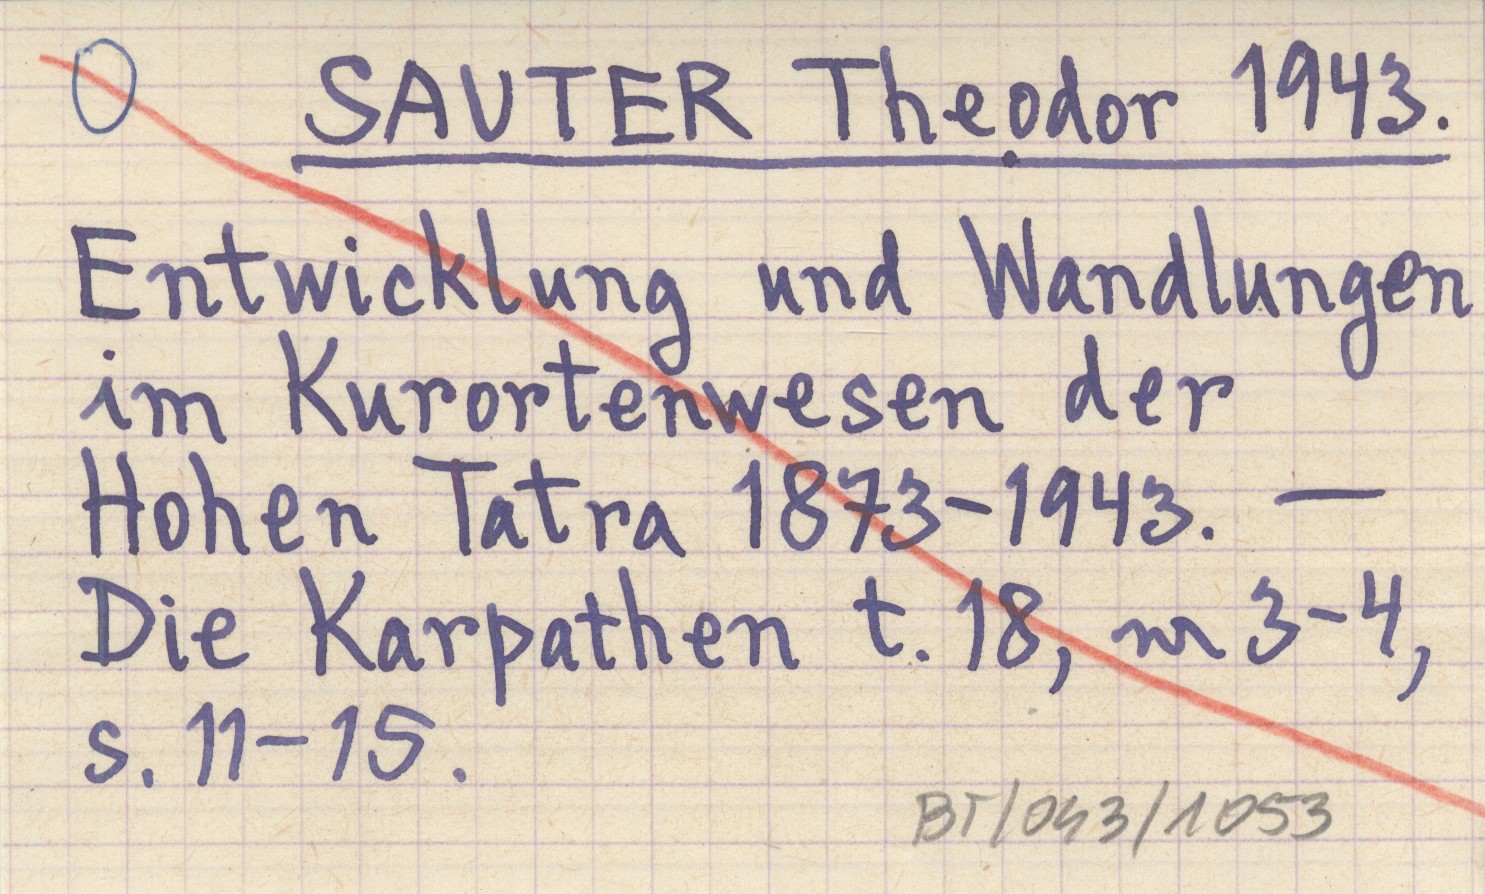 SAUTER Theodor 1943.
Entwicklung und Wandlungen
im Kurortenwesen der
Hohen Tatra 1873-1943. —
Die Karpathen t. 18, nr 3-4,
s. 11-15.
BT/043/1053